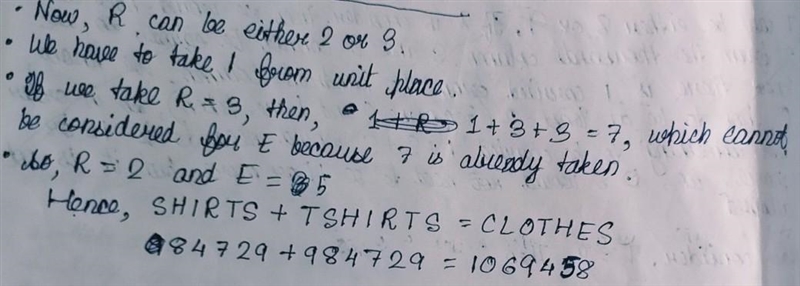 • Now, R can be either 2 or 3.
• We have to take 1 from unit place.
• If we take R = 3, then, 1 + 3 + 3 = 7, which cannot
be considered for E because 7 is already taken.
• So, R = 2 and E = 5
Hence, SHIRTS + TSHIRTS = CLOTHES
84729 + 984729 = 1069458